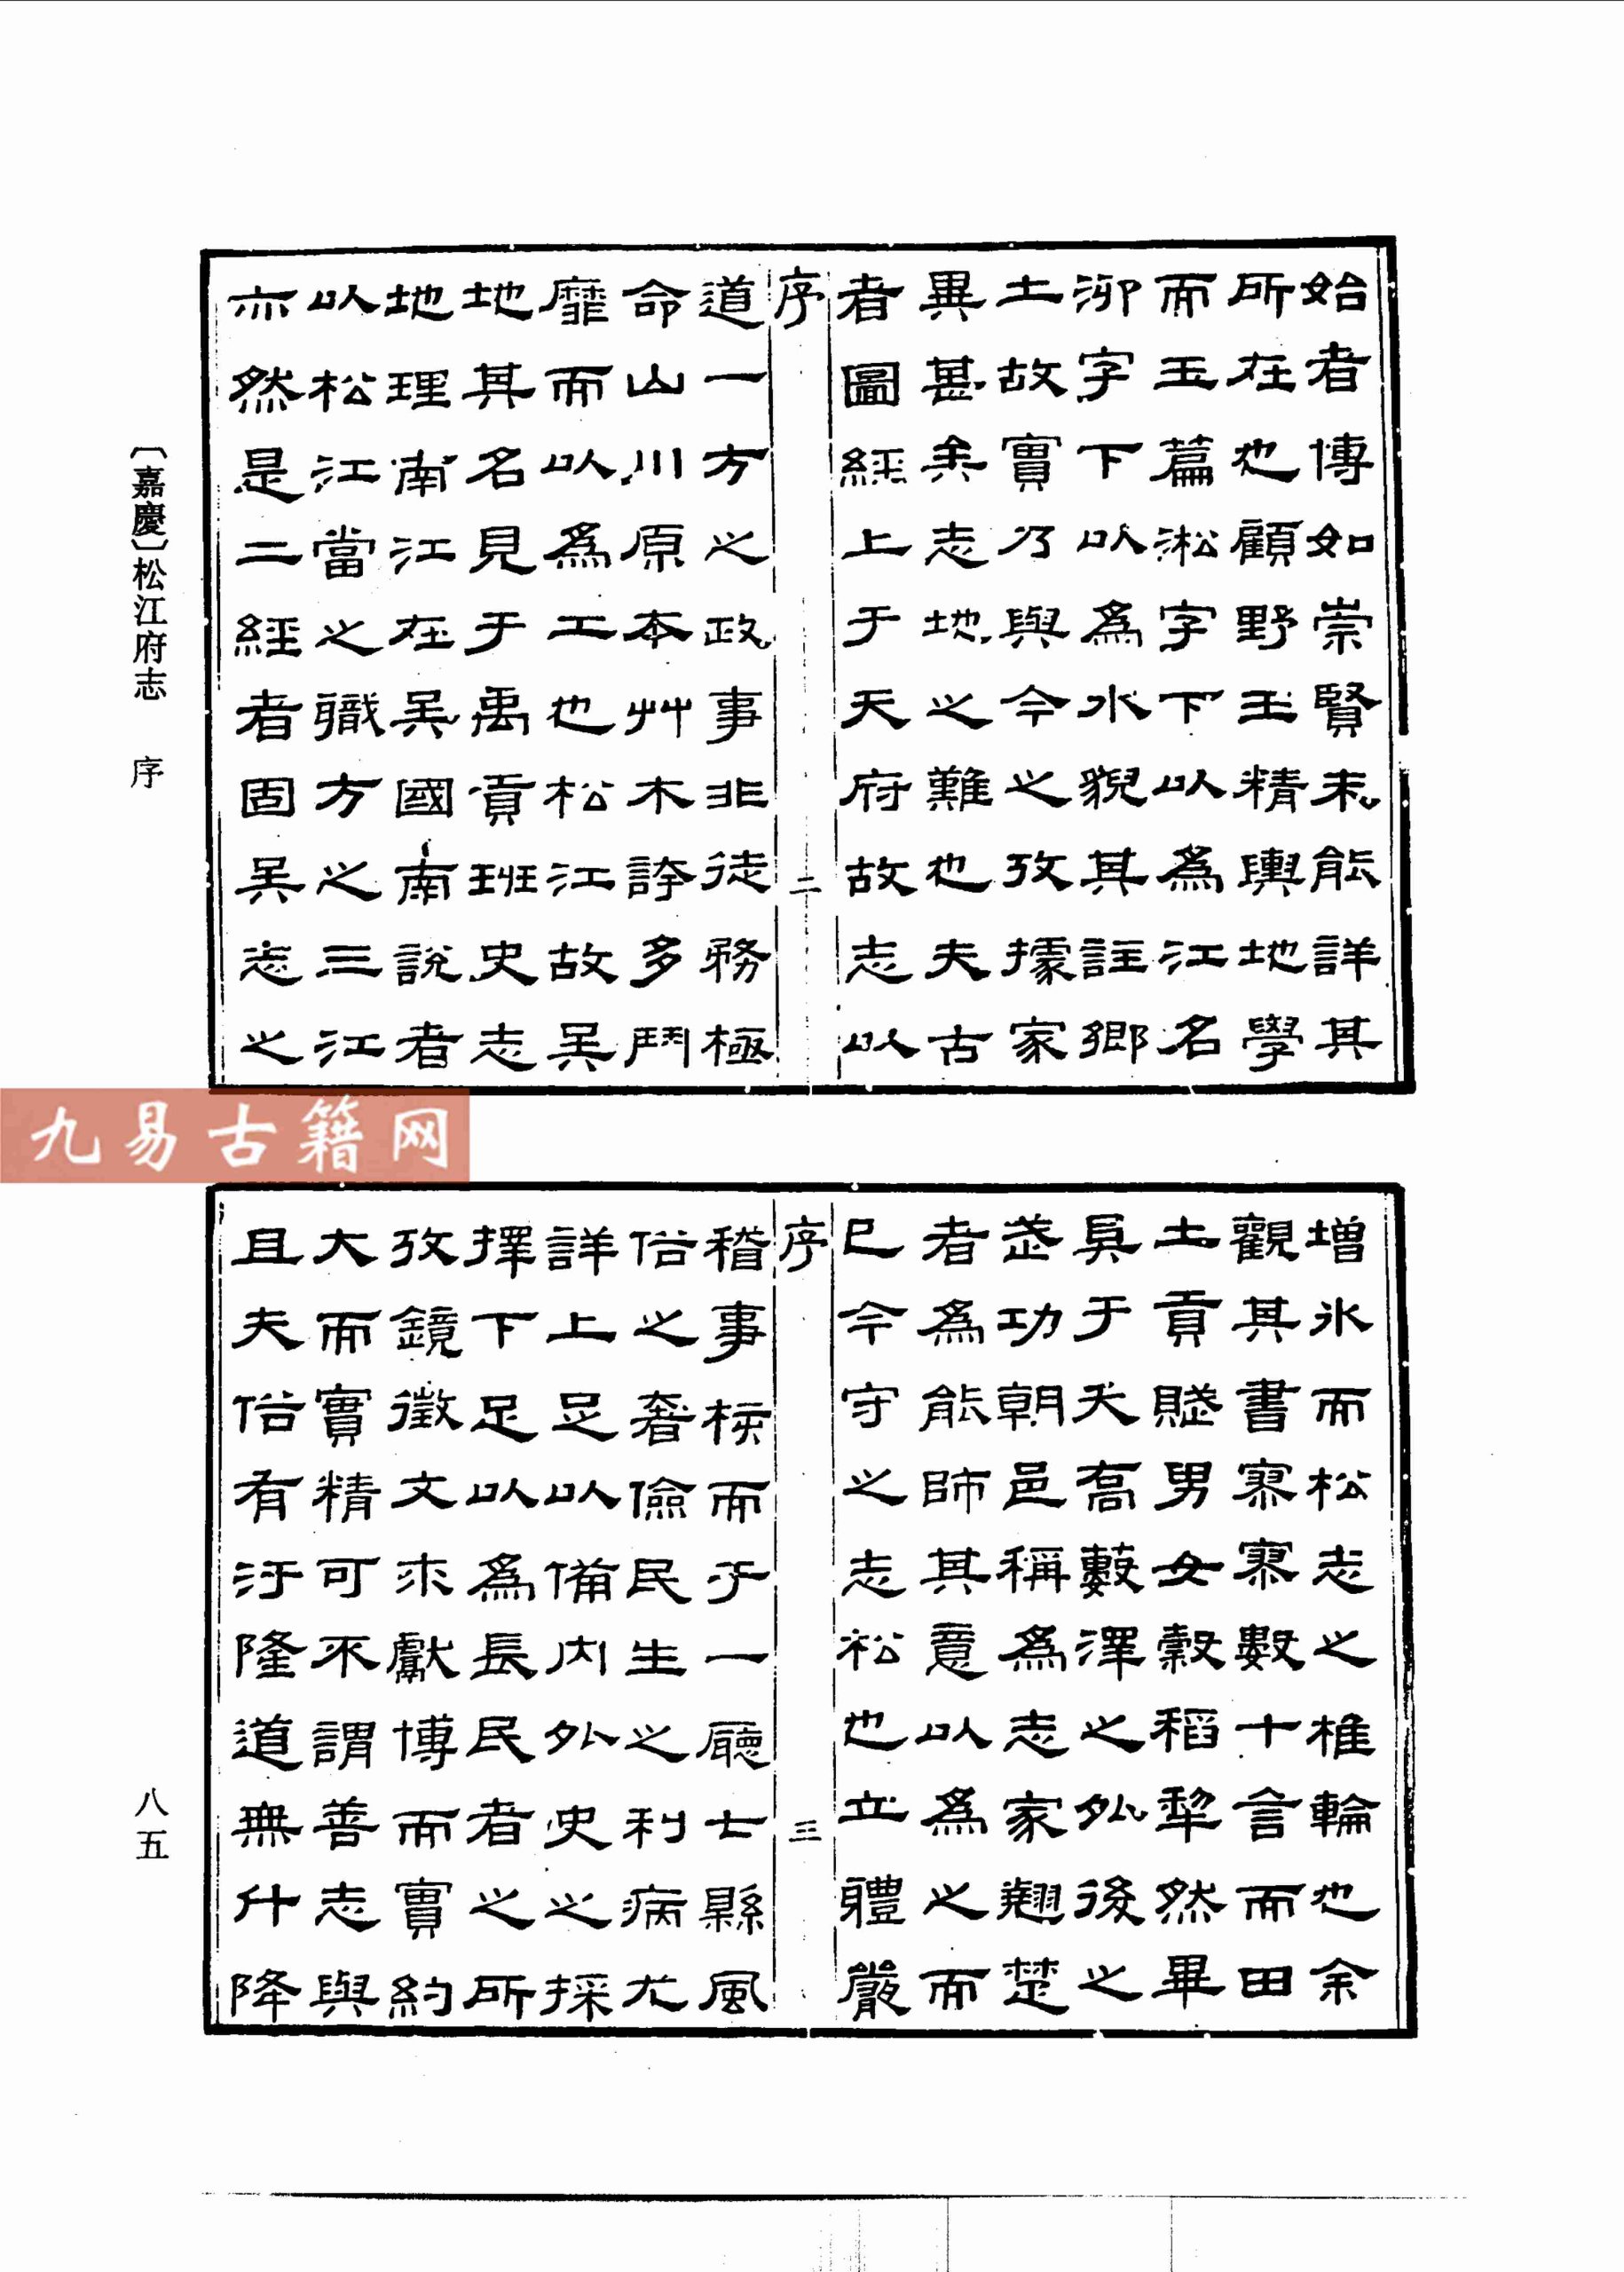 始者傳如崇賢未能詳其
所在也顧野王精輿地學
而玉篇淞字下以爲江名
泖字下以爲水貌其註鄉
土故實乃與今之攷據家
異甚矣志地之難也夫古
者圖經上于天府故志以
序
二
道一方之政事非徒務極
命山川原本艸木誇多鬥
靡而以爲工也松江故吴
地其名見于禹貢班史志
地理南江在吴國南說者
以松江當之職方之三江
亦然是二經者固吴志之
〔嘉慶〕松江府志 序
九易古籍网
增冰而松志之椎輪也余
觀其書寥寥數十言而田
土貢賦男女穀稻犂然畢
具于天高藪澤之外後之
武功朝邑稱爲志家翹楚
者爲能師其意以爲之而
已今守之志松也立體嚴
序
三
稽事核而于一廳七縣風
俗之奢儉民生之利病尤
詳上足以備內外史之採
擇下足以爲長民者之所
攷鏡徵文求獻博而實約
大而實精可不謂善志與
且夫俗有汙隆道無升降
八五